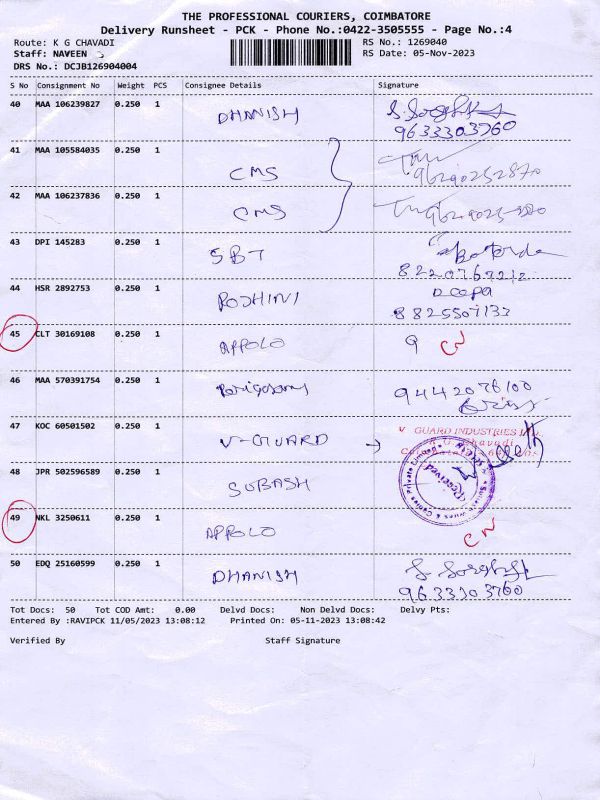 THE PROFESSIONAL COURIERS, COIMBATORE
Delivery Runsheet - PCK - Phone No.:0422-3505555 - Page No.:4
Route: K G CHAVADI RS No.: 1269040
Staff: NAVEEN S RS Date: 05-Nov-2023
DRS No.: DCJB126904004
S No Consignment No Weight PCS Consignee Details Signature
40 MAA 106239827 0.250 1 DHANISH
9633303760
41 MAA 105584035 0.250 1 CMS
96290252870
42 MAA 106237836 0.250 1 CMS
43 DPI 145283 0.250 1 SBT
44 HSR 2892753 0.250 1 ROSHINI Deepa
8825507133
45 CLT 30169108 0.250 1 APPOLO 9 CN
46 MAA 570391754 0.250 1 9442076100
47 KOC 60501502 0.250 1 V-GUARD → V GUARD INDUSTRIES LTD.
K.G. Chavadi
48 JPR 502596589 0.250 1 SUBASH Received
49 NKL 3250611 0.250 1 APPOLO CN
50 EDQ 25160599 0.250 1 DHANISH
9633303760
Tot Docs: 50 Tot COD Amt: 0.00 Delvd Docs: Non Delvd Docs: Delvy Pts:
Entered By :RAVIPCK 11/05/2023 13:08:12 Printed On: 05-11-2023 13:08:42
Verified By Staff Signature